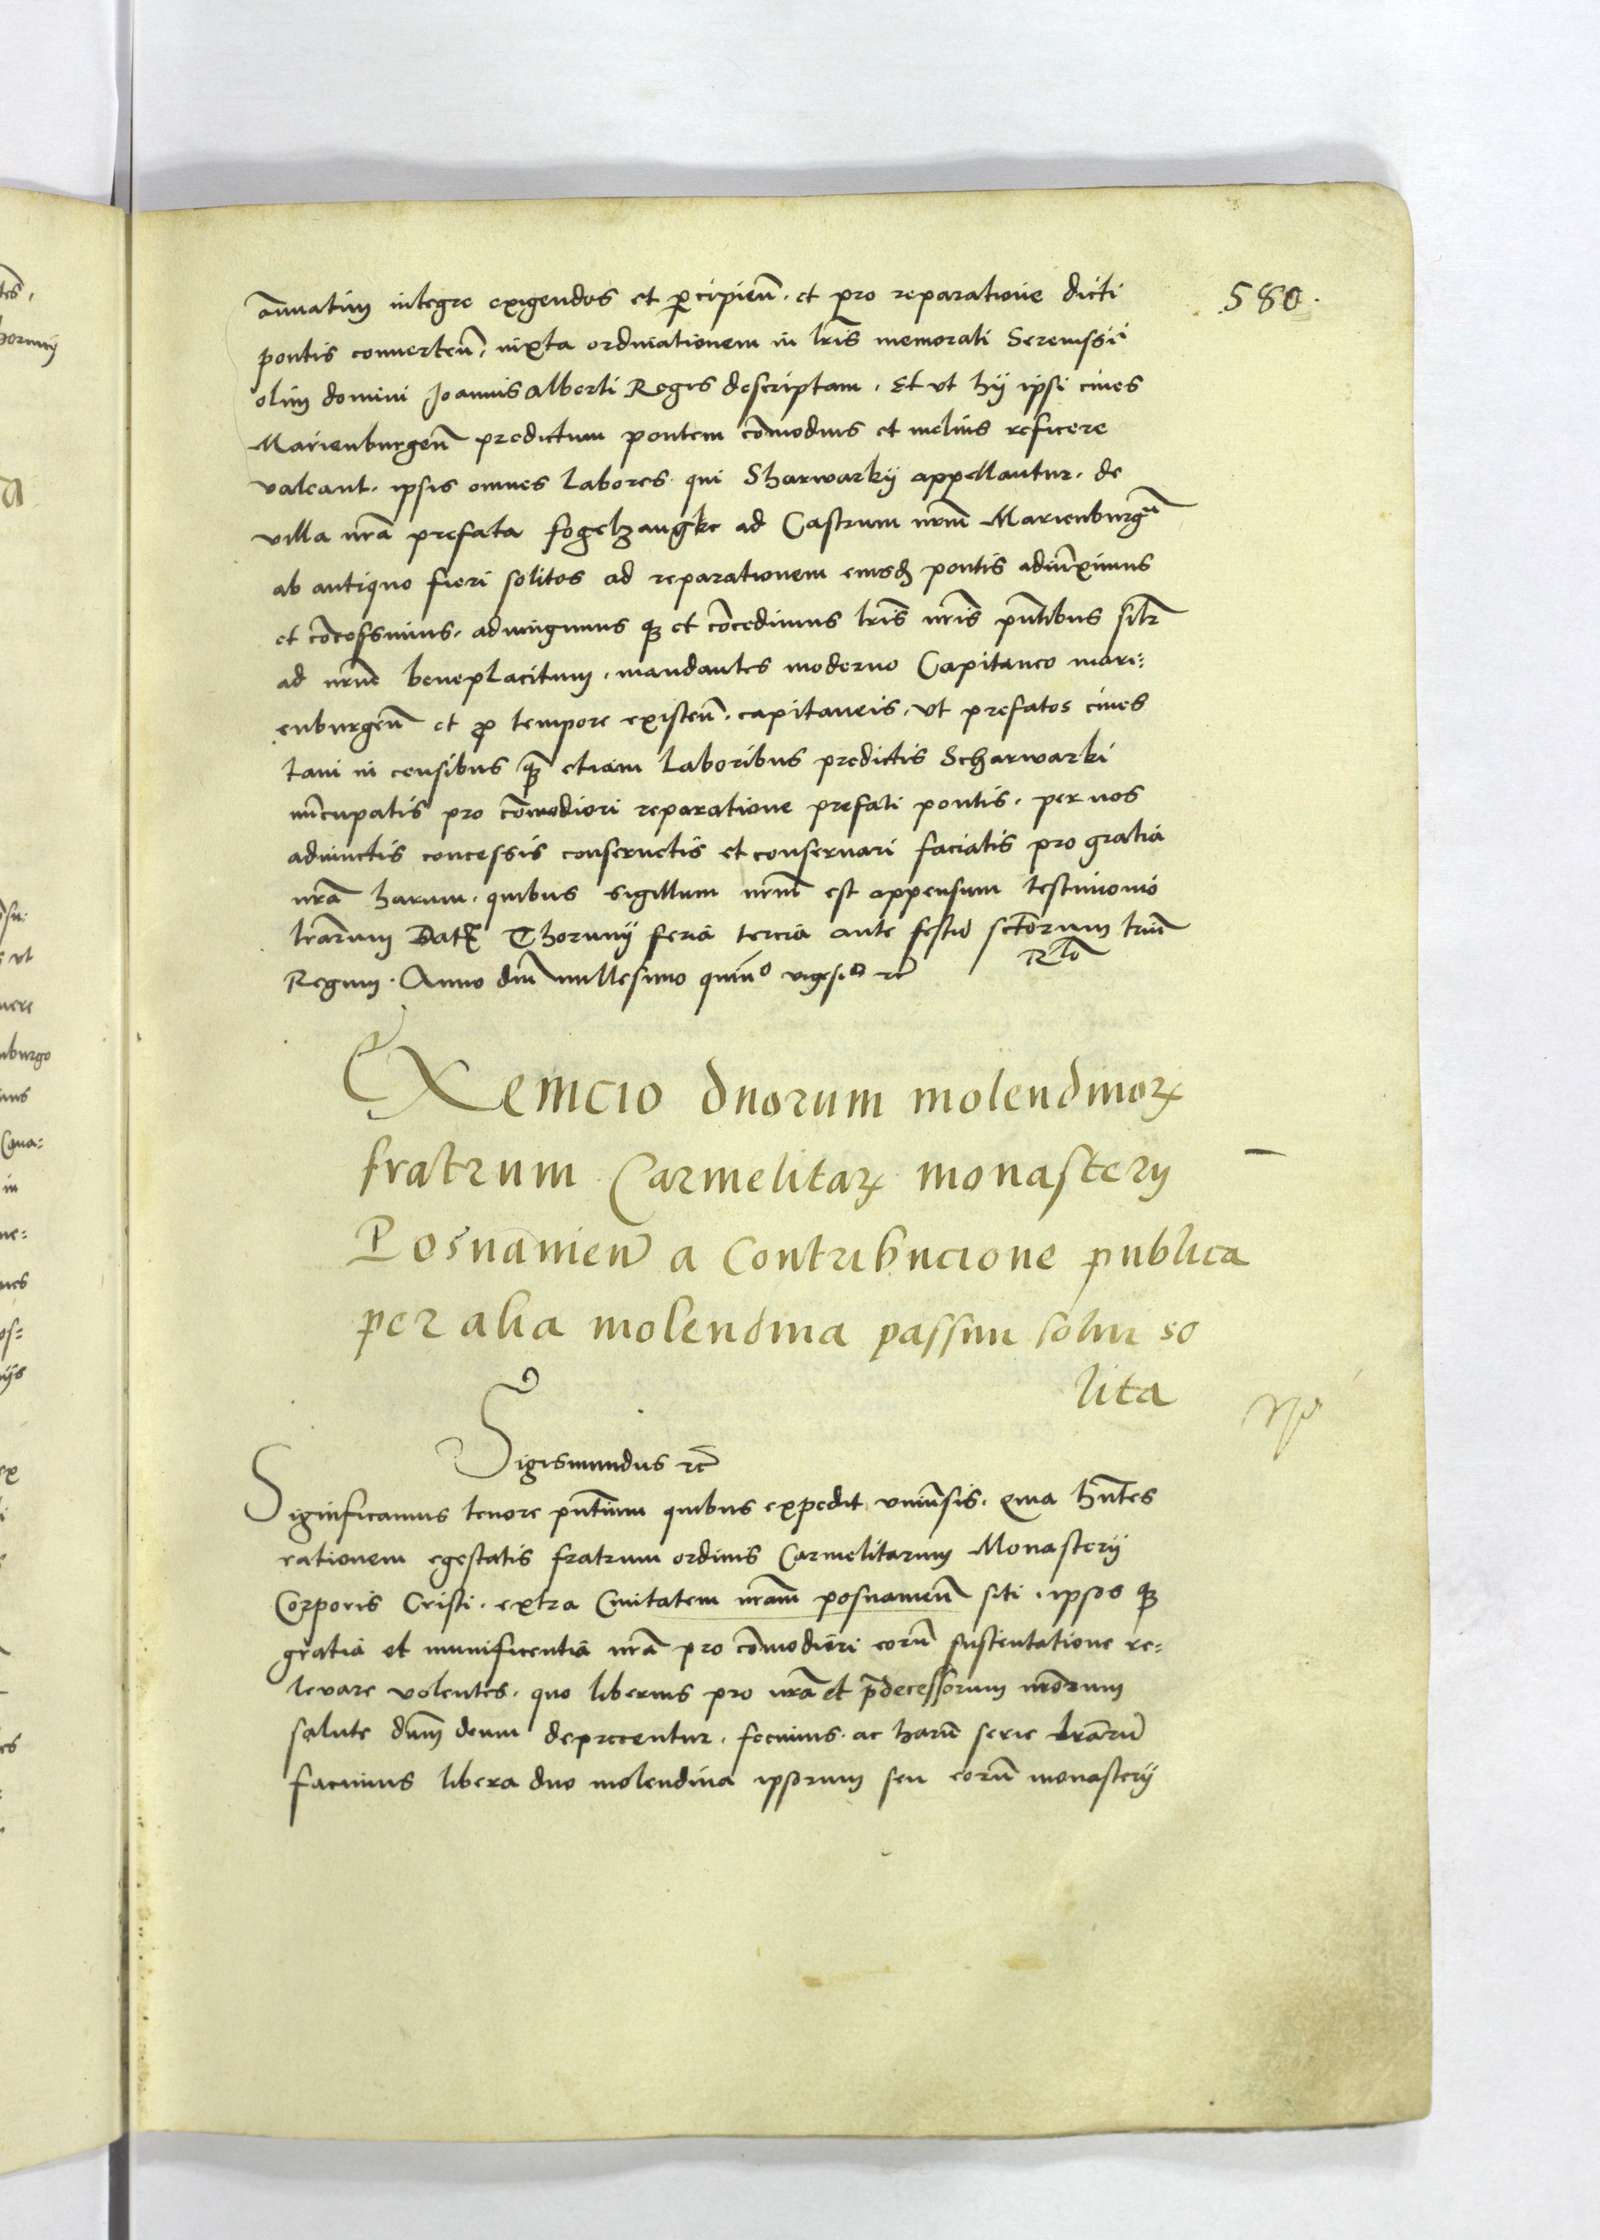 580.
a̅nuatim integre exigendos et p̱cipien̅. et pro reparatione dicti
pontis conuerten̅, iuxta ordinationem in lr̅is memorati Serenissi̅i
olim domini Joannis Alberti Regis descriptam. Et vt hij ipsi ciues
Marienburgen̅ predictum pontem co̅modius et melius reficere
valeant. ipsis omnes labores qui Sharwarkij appellantur. de
villa nr̅a prefata fogelzangke ad Castrum nr̅um Marienburgen̅
ab antiquo fieri solitos ad reparationem eiusdꝫ pontis adiu̅ximus
et co̅cessimus. adiungimusqꝫ et co̅cedimus lr̅is nr̅is pn̅tibus silr̅
ad nr̅um beneplacitum. mandantes moderno Capitaneo mari=
enburgen̅ et ꝓ tempore existen̅. capitaneis. vt prefatos ciues
tam in censibus qꝫ etiam laboribus predictis Scharwarki
nu̅cupatis pro co̅modiori reparatione prefati pontis. per nos
adiunctis concessis conseruetis et conseruari faciatis pro gratia
nr̅a harum. quibus sigillum nr̅um est appensum testimonio
lr̅arum Datꝫ Thorunij feria tercia ante festu̅ sct̅orum triu̅
Regum. Anno dn̅i millesimo quin̅o vigesi̅o rc̅ Rl̅o
Exemcio duorum molendinorꝝ
fratrum Carmelitarꝝ monasterij
Posnanien̅ a Contribucione publica
per alia molendina passim solui so
lita
Sigismundus rc̅
Significamus tenore pn̅tium quibus expedit vniu̅sis. Quia hn̅tes
rationem egestatis fratrum ordinis Carmelitarum Monasterij
Corporis Cristi. extra Ciuitatem nr̅am posnanien̅ siti. ipsosqꝫ
gratia et munificentia nr̅a pro co̅modiori eoru̅ sustentatione re=
leuare volentes. quo liberius pro nr̅a et p̅decessorum nr̅orum
salute dn̅m deum deprecentur. fecimus. ac haru̅ serie lr̅aru̅
facimus libera duo molendina ipsorum seu eoru̅ monasterij